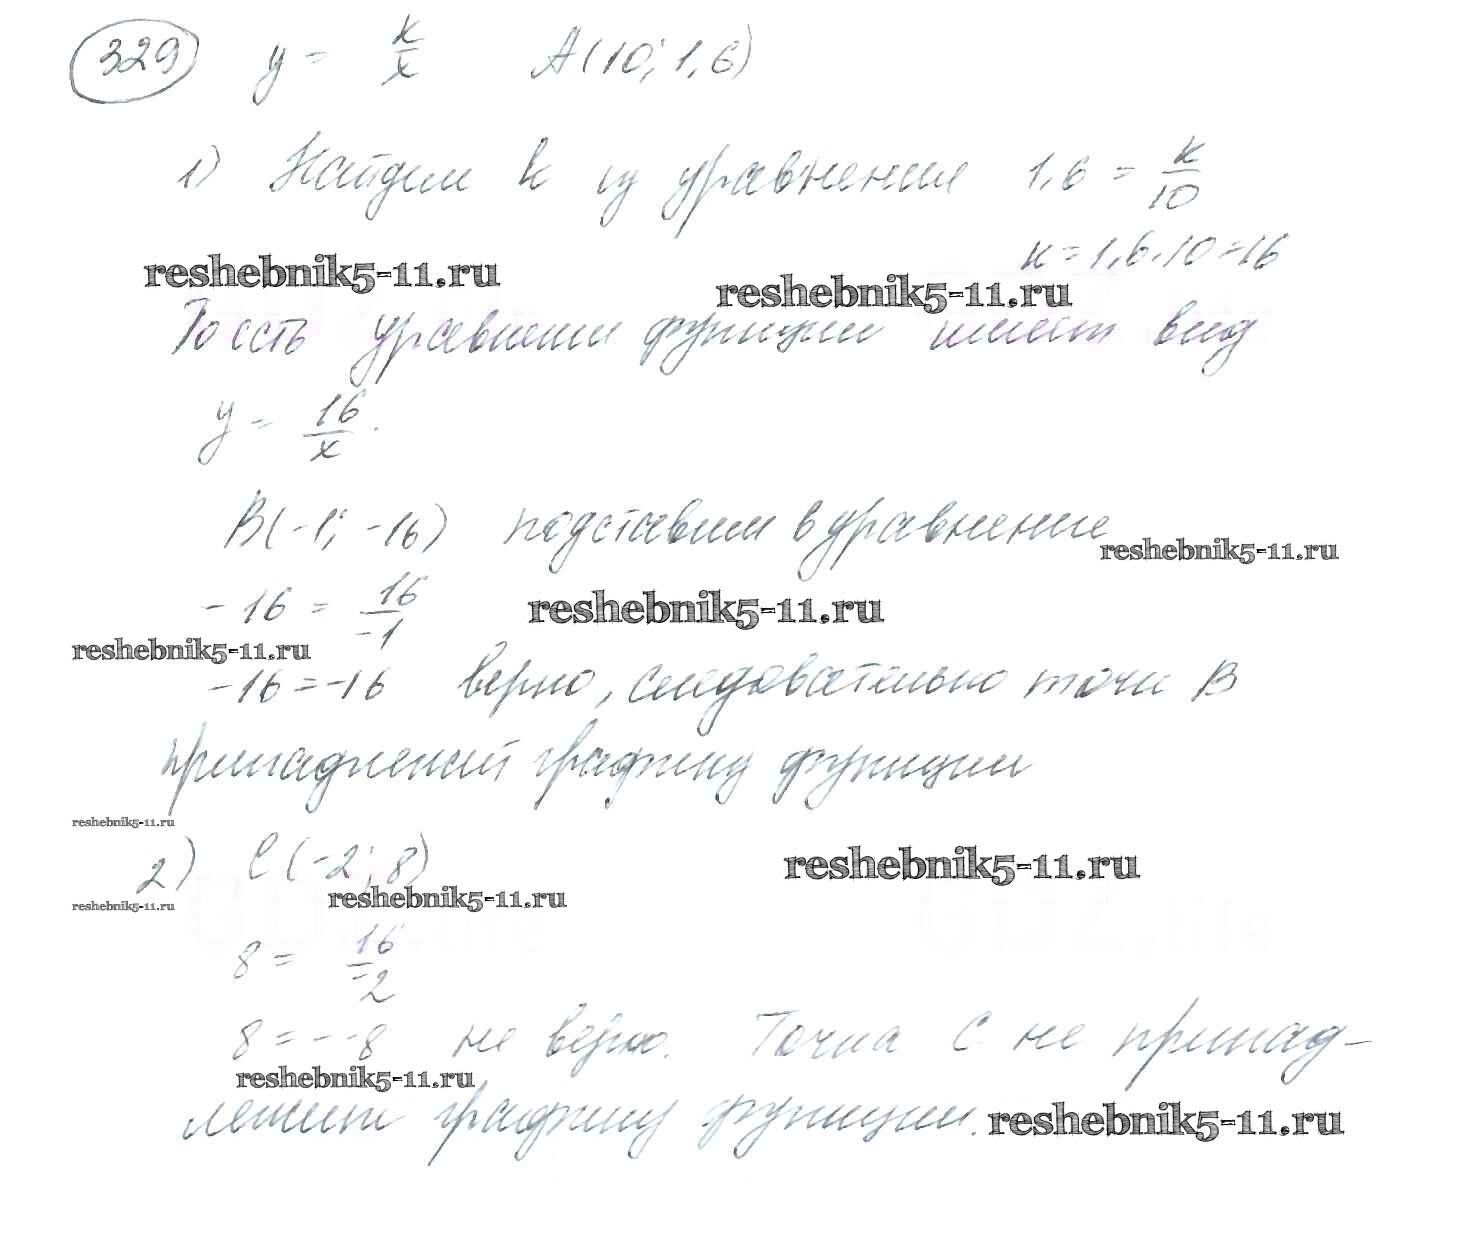 329 y = k/x A(10; 1,6)
1) Найдем k из уравнения 1,6 = k/10
k = 1,6·10 = 16
reshebnik5-11.ru reshebnik5-11.ru
То есть уравнени функции имеет вид
y = 16/x.
B(-1; -16) подставим в уравнение
reshebnik5-11.ru
-16 = 16/-1
reshebnik5-11.ru
reshebnik5-11.ru
-16 = -16 верно, следовательно точк B
принадлежит графику функции
reshebnik5-11.ru
2) C(-2; 8)
reshebnik5-11.ru
reshebnik5-11.ru
reshebnik5-11.ru
GDZ.life
8 = 16/-2
8 = --8 не верно. Точка C не принад-
reshebnik5-11.ru
лежит графику функции.
reshebnik5-11.ru